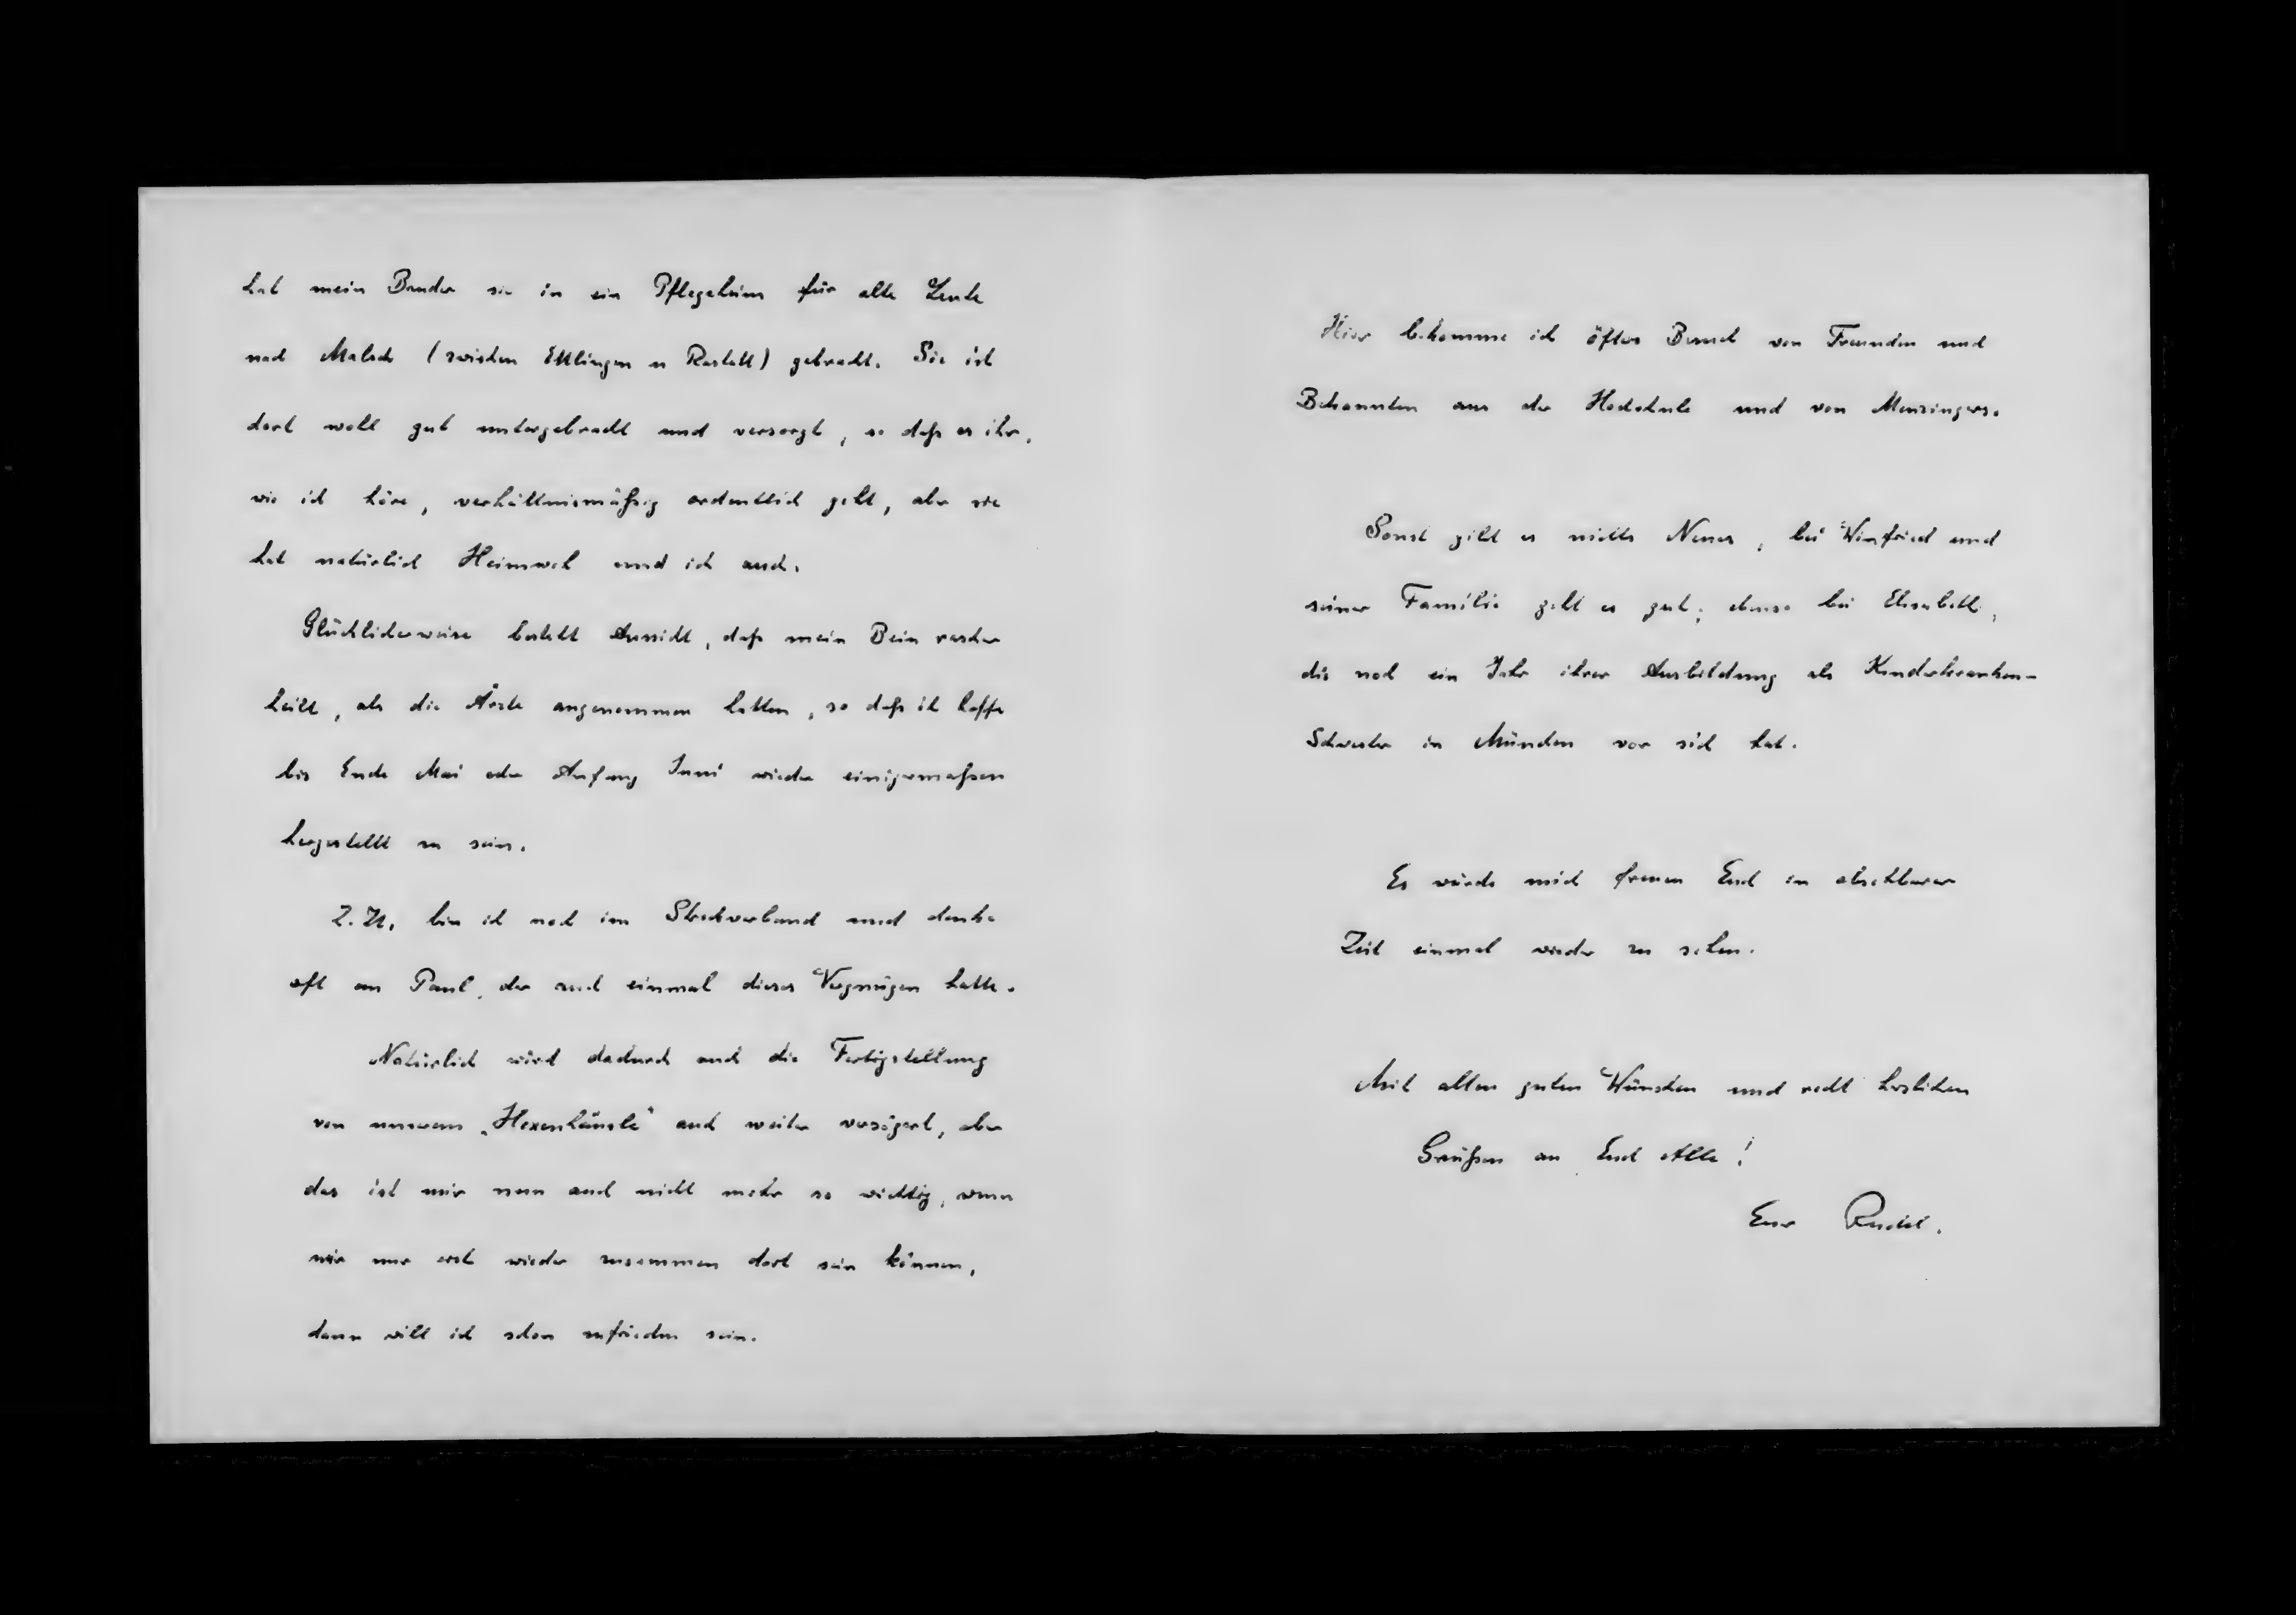 hat mein Bruder sie in ein Pflegeheim für alte Leute
nach Malsch (zwischen Ettlingen u Rastatt) gebracht. Sie ist
dort wohl gut untergebracht und versorgt, so daß es ihr,
wie ich höre, verhältnismäßig ordentlich geht, aber sie
hat natürlich Heimweh und ich auch.
Glücklicherweise besteht Aussicht, daß mein Bein rascher
heilt, als die Ärzte angenommen hatten, so daß ich hoffe
bis Ende Mai oder Anfang Juni wieder einigermaßen
hergestellt zu sein.
Z. Zt. bin ich noch im Streckverband und denke
oft an Paul, der auch einmal dieses Vergnügen hatte.
Natürlich wird dadurch auch die Fertigstellung
von unserem „Hexenhäusle" auch weiter verzögert, aber
das ist mir nun auch nicht mehr so wichtig, wenn
wir nur erst wieder zusammen dort sein können,
dann will ich schon zufrieden sein.
Hier bekomme ich öfters Besuch von Freunden und
Bekannten aus der Hochschule und von Menzingers.
Sonst gibt es nichts Neues, bei Winfried und
seiner Familie geht es gut; ebenso bei Elisabeth,
die noch ein Jahr ihrer Ausbildung als Kinderkranken-
Schwester in München vor sich hat.
Es würde mich freuen Euch in absehbarer
Zeit einmal wieder zu sehen.
Mit allen guten Wünschen und recht herzlichen
Grüßen an Euch Alle!
Euer